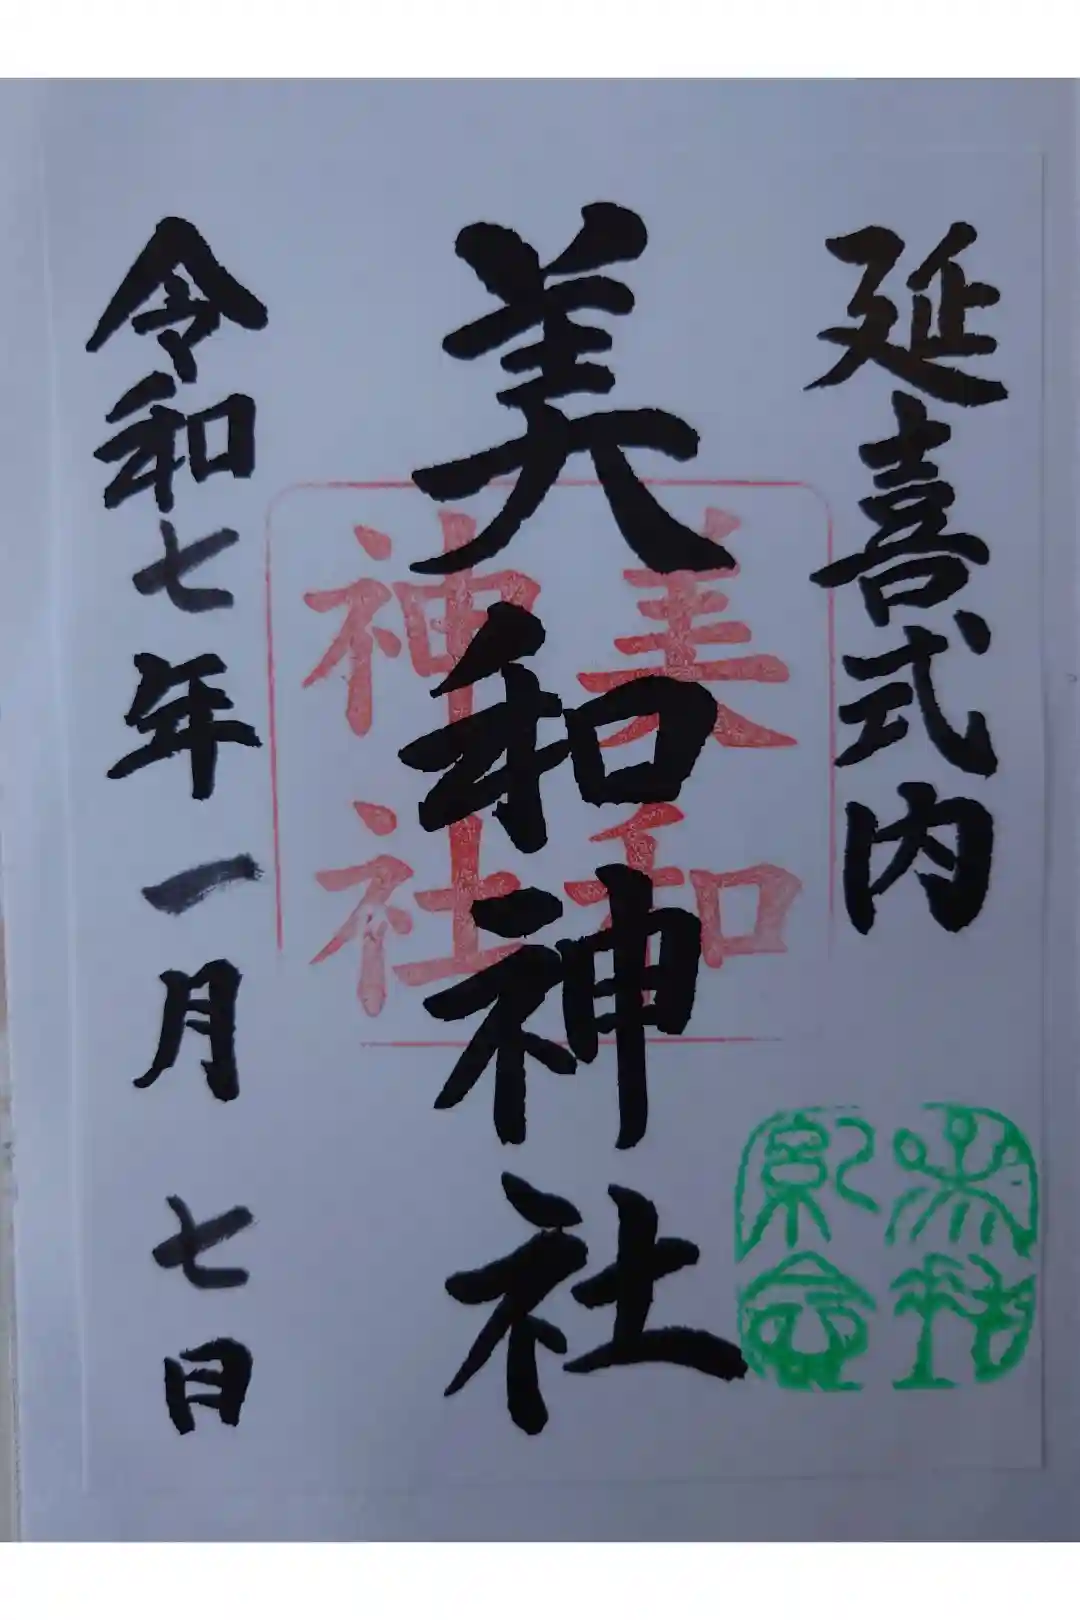 延喜式内
美和神社
美和
神社
令和七年一月七日
参拝
記念